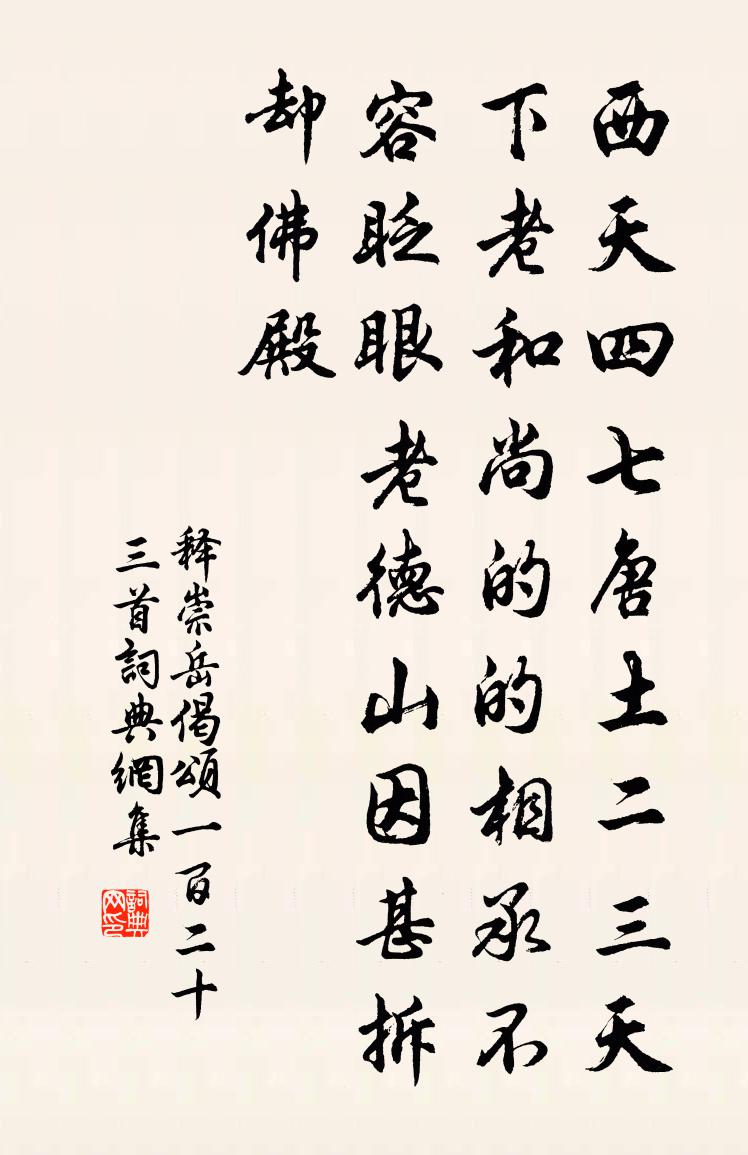 西天四七唐土二三天
下老和尚的的相承不
容眨眼老德山因甚拆
却佛殿
释崇岳偈頌一百二十
三首詞典網集
詞典
网印